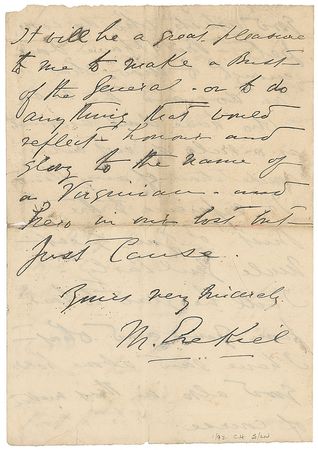 It will be a great pleasure
to me to make a Bust
of the General - or to do
anything that would
reflect honour and
glory to the name of
a Virginian - and
hero in our lost but
Just Cause.
Yours very sincerely
M. Ezekiel